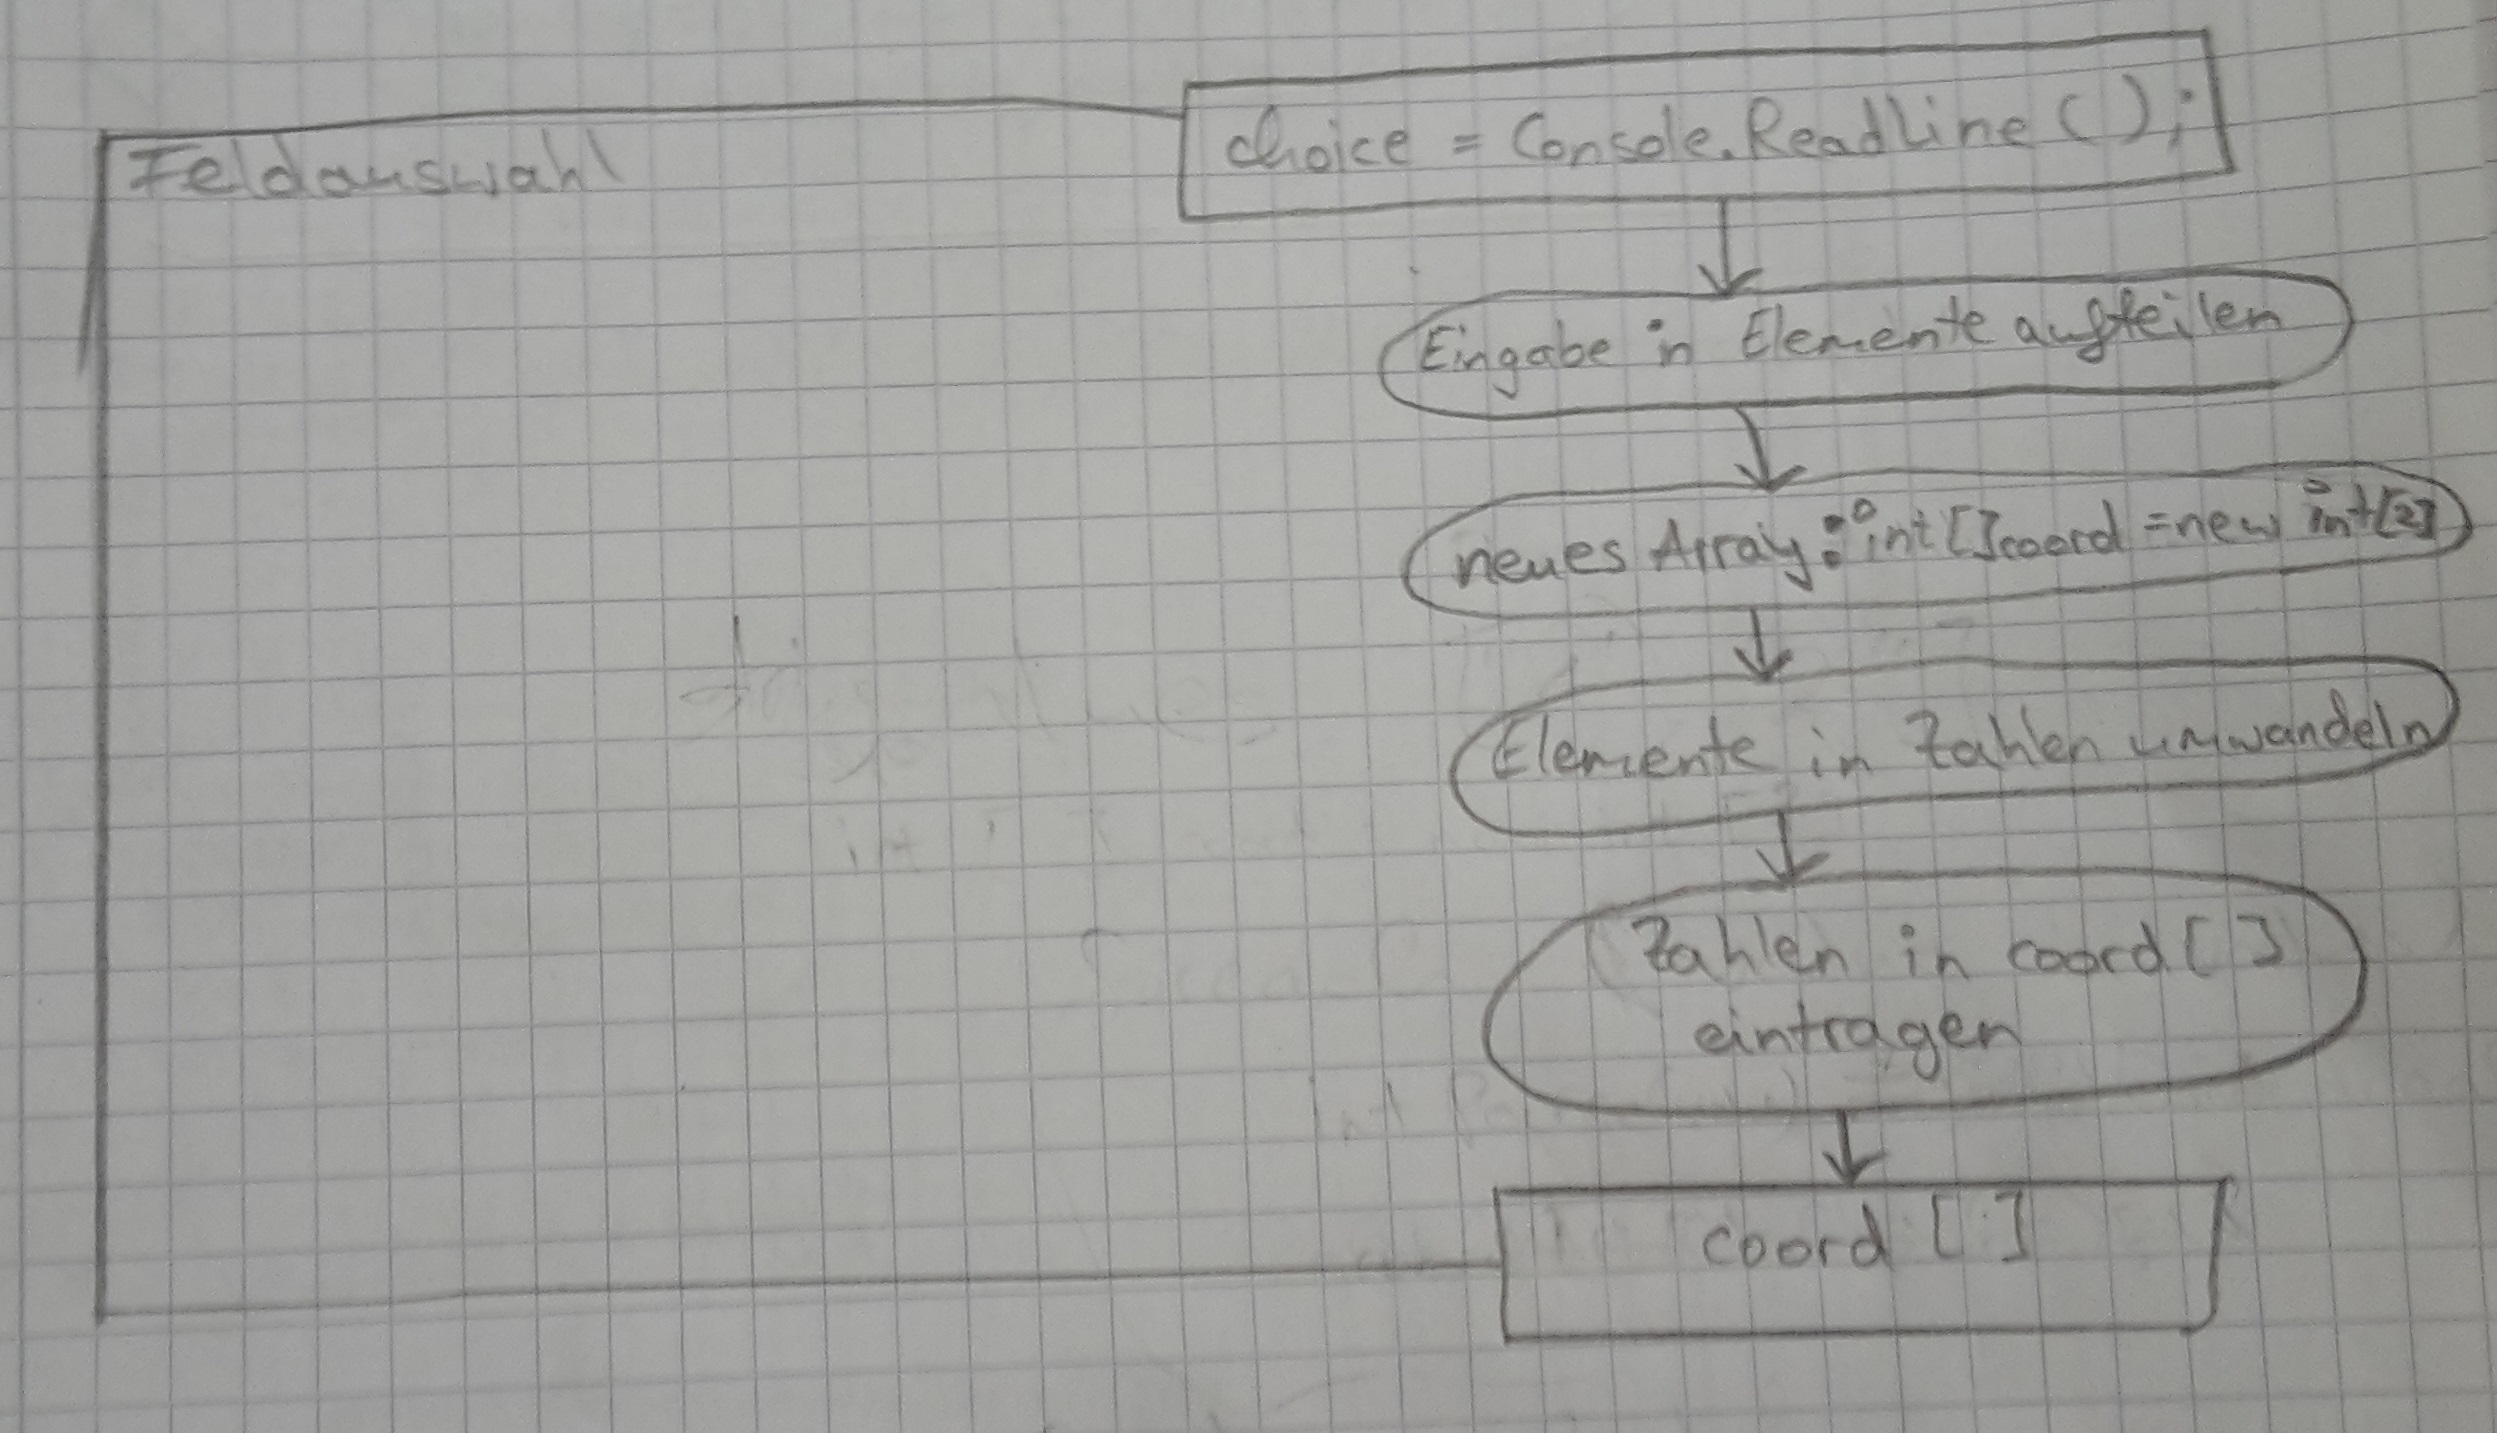 Feldauswahl
choice = Console.ReadLine();
Eingabe in Elemente aufteilen
neues Array: int[]coord = new int[2]
Elemente in Zahlen umwandeln
Zahlen in coord[]
eintragen
coord []